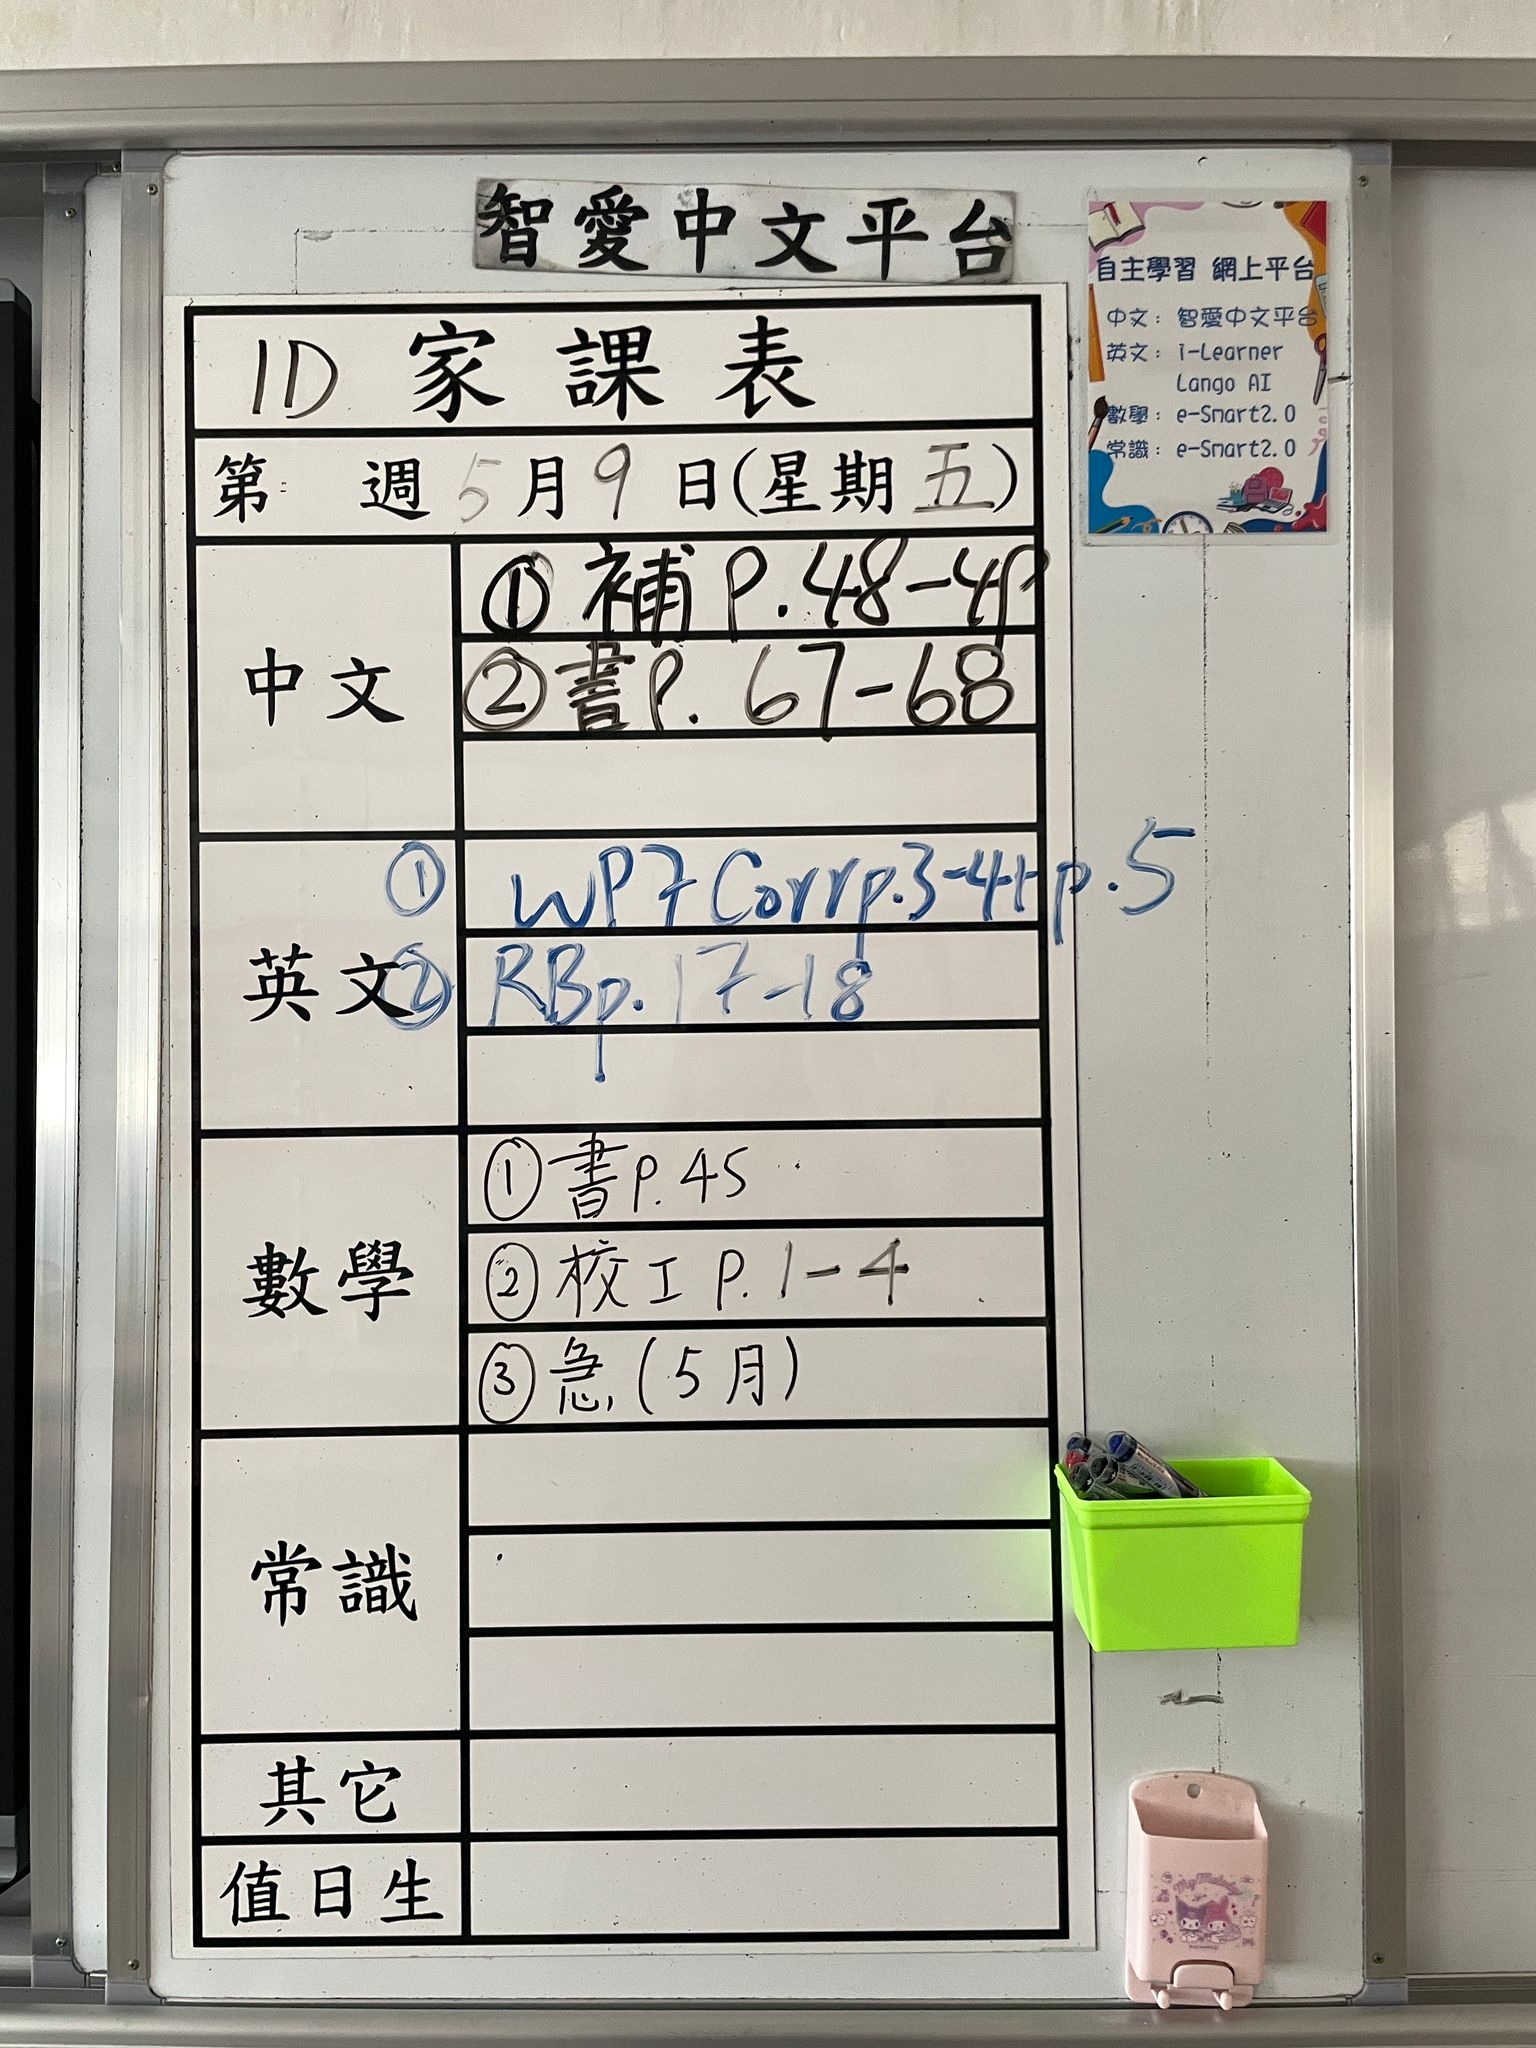 智愛中文平台
自主學習 網上平台
中文：智愛中文平台
英文：i-Learner
Lango AI
數學：e-Smart2.0
常識：e-Smart2.0
1D 家課表
第 週 5月9日(星期五)
中文
① 補 P.48-49
② 書P. 67-68
英文
① WP7 Corr p.3-4 + p.5
② RB p.17-18
數學
① 書P.45
② 校工 P.1-4
③ 急(5月)
常識
其它
值日生
My Melody